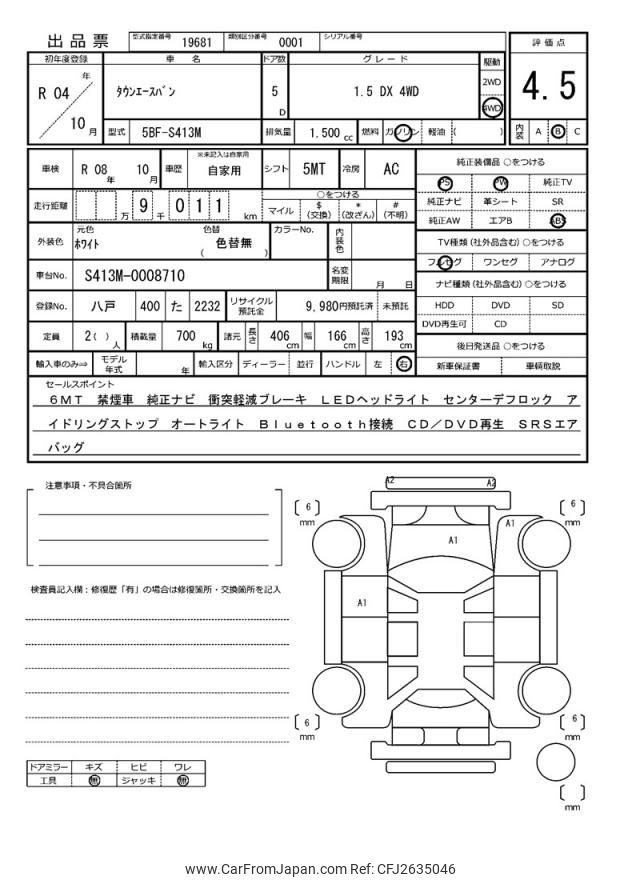 出品票
型式指定番号 19681 類別区分番号 0001 シリアル番号
評価点
4.5
初年度登録 車名 ドア数 グレード 駆動
R 04 年
10 月
タウンエースバン 5 D 1.5 DX 4WD 2WD
4WD
型式 5BF-S413M 排気量 1.500 cc 燃料 ガソリン 軽油 ( )
内装 A B C
車検 R 08 年 10 月 車歴 ※未記入は自家用
自家用 シフト 5MT 冷房 AC
走行距離 万 9 千 0 1 1 km
○をつける
マイル $(交換) *(改ざん) #(不明)
外装色 元色 ホワイト 色替 ( 色替無 ) カラーNo. 内装色
車台No. S413M-0008710 名変期限 月 日
登録No. 八戸 400 た 2232 リサイクル預託金 9,980円預託済 未預託
定員 2( )人 積載量 700 kg 諸元 長さ 406 cm 幅 166 cm 高さ 193 cm
輸入車のみ⇒ モデル年式 年 輸入区分 ディーラー 並行 ハンドル 左 右
純正装備品 ○をつける
PS PW 純正TV
純正ナビ 革シート SR
純正AW エアB ABS
TV種類 (社外品含む) ○をつける
フルセグ ワンセグ アナログ
ナビ種類 (社外品含む) ○をつける
HDD DVD SD
DVD再生可 CD
後日発送品 ○をつける
新車保証書 車輌取説
セールスポイント
6MT 禁煙車 純正ナビ 衝突軽減ブレーキ LEDヘッドライト センターデフロック ア
イドリングストップ オートライト Bluetooth接続 CD/DVD再生 SRSエア
バッグ
注意事項・不具合箇所
検査員記入欄：修復歴「有」の場合は修復箇所・交換箇所を記入
A2 A2
〔 6 〕 mm 〔 6 〕 mm
A1
A1
A1
〔 6 〕 mm 〔 6 〕 mm
〔 〕 mm
ドアミラー キズ ヒビ ワレ
工具 無 ジャッキ 無
www.CarFromJapan.com Ref: CFJ2635046